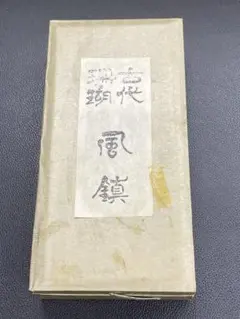 古代
珊瑚
風鎮